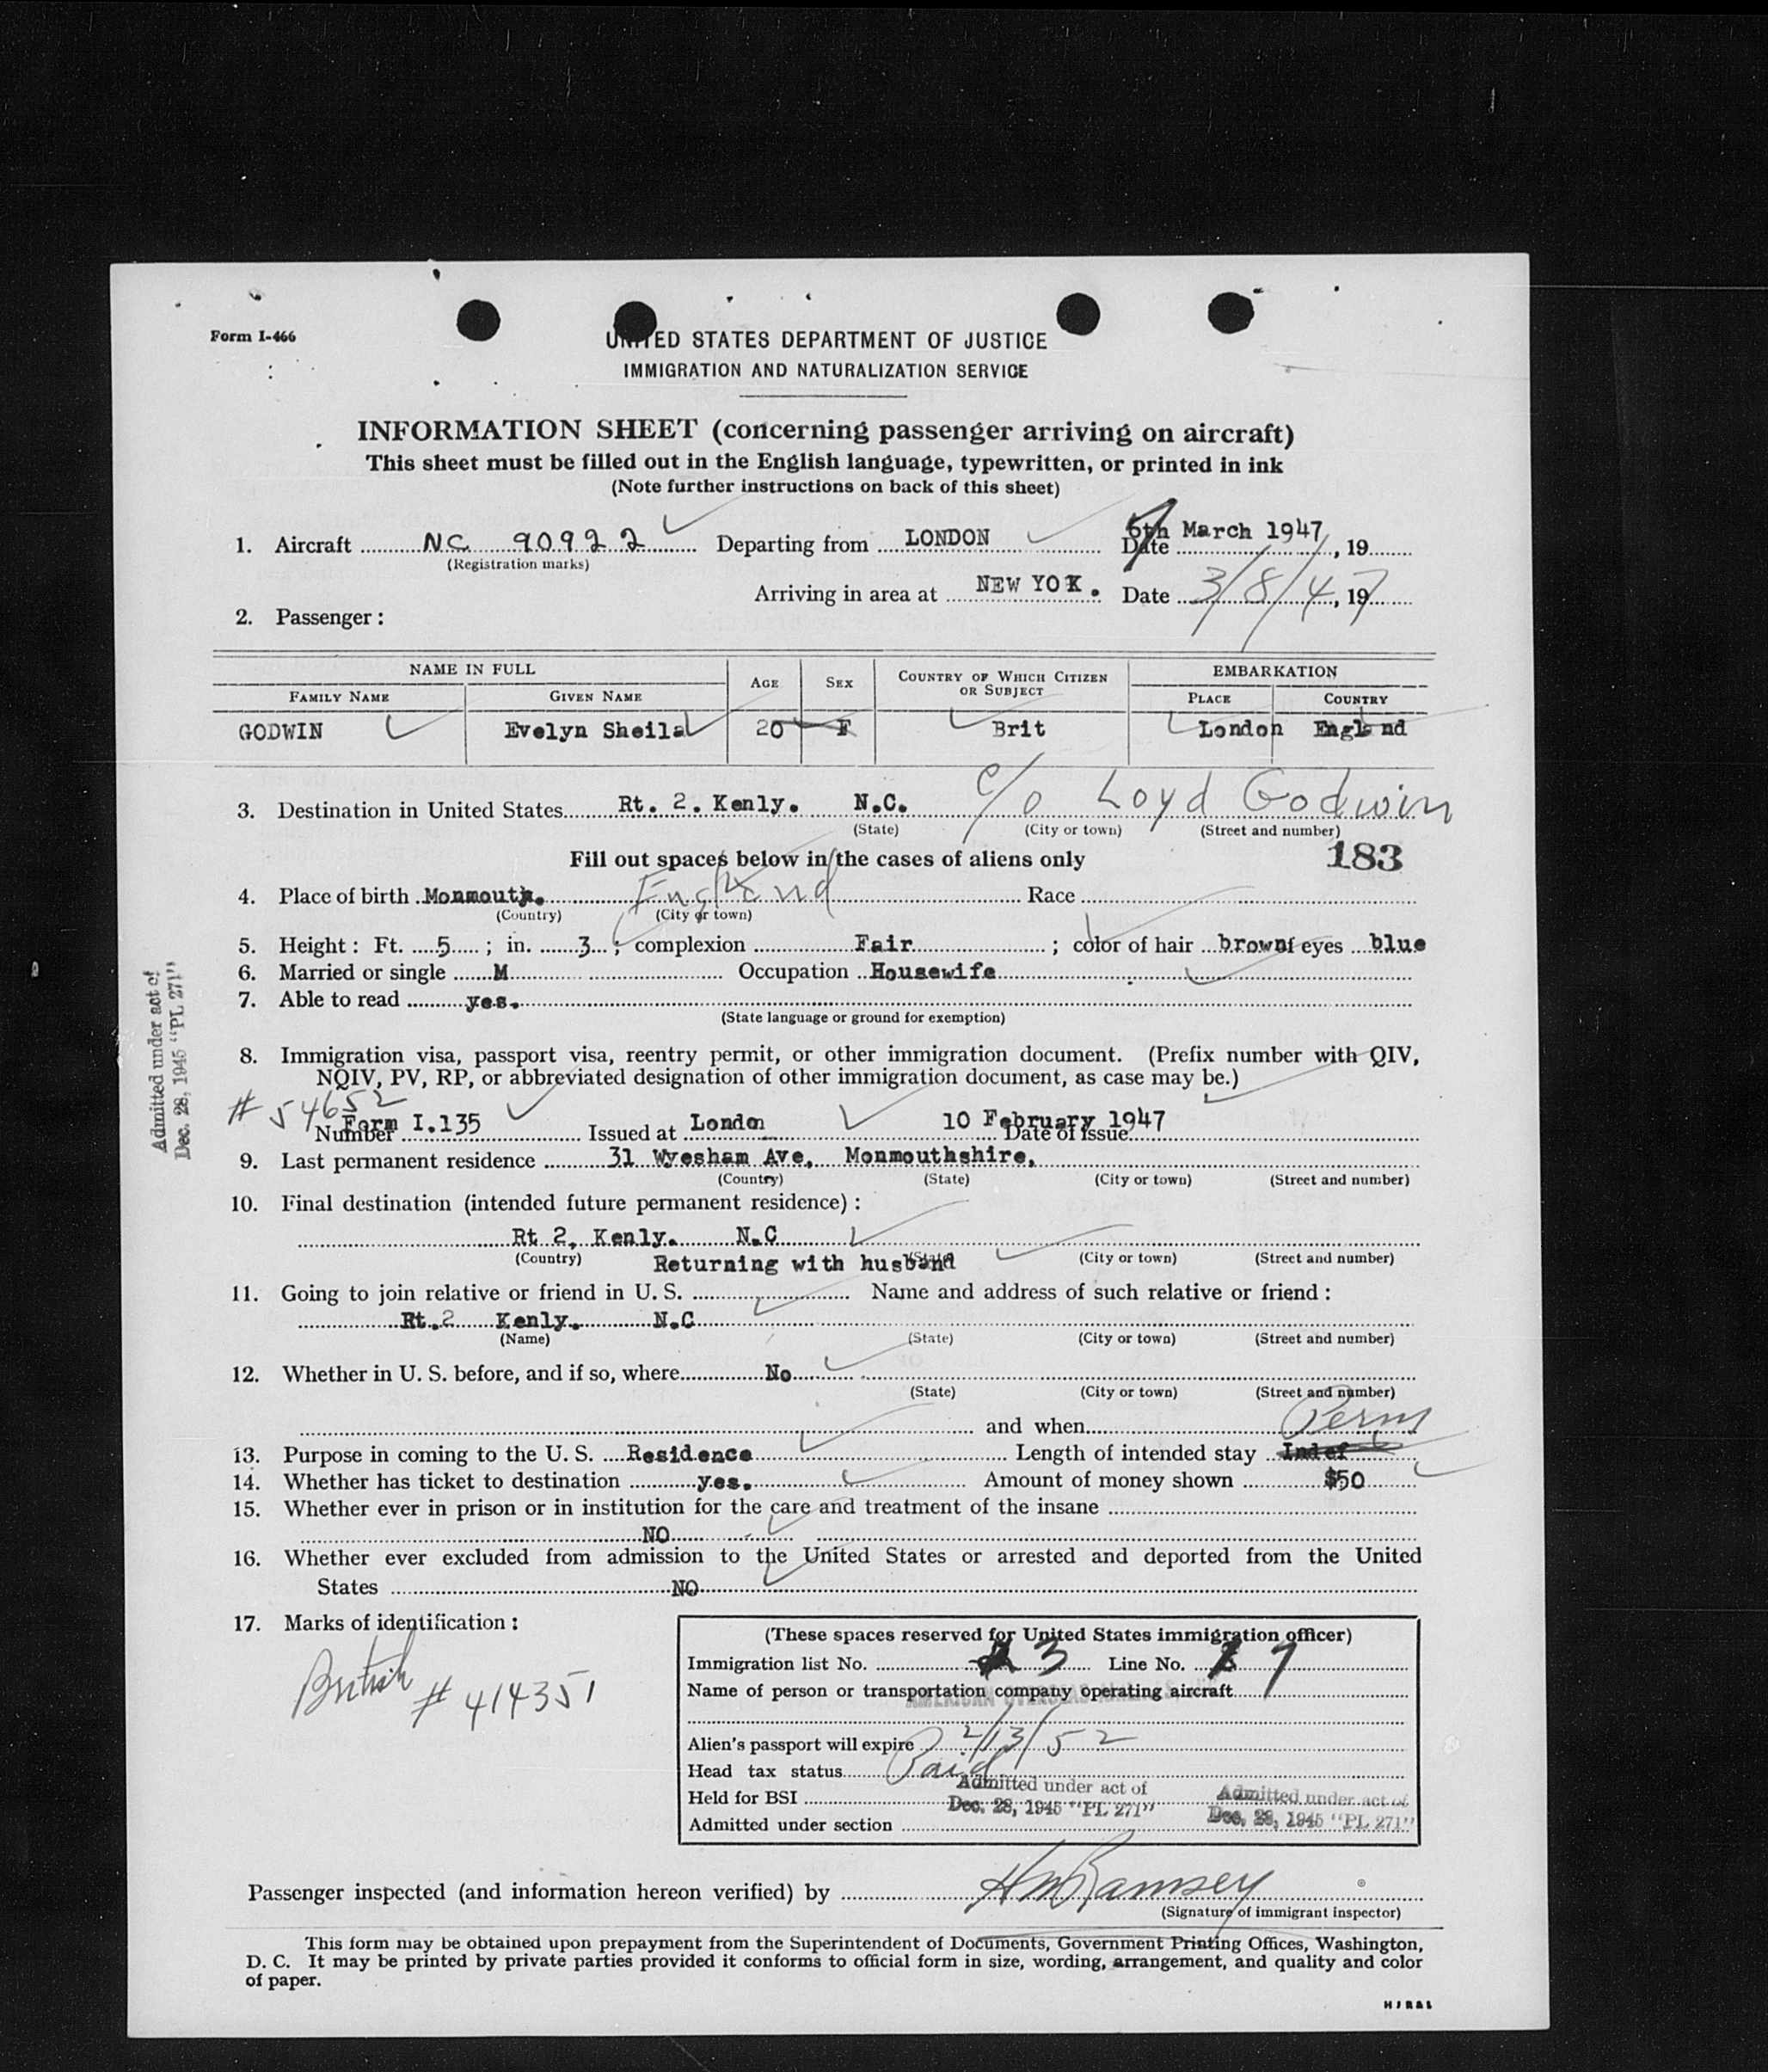 Form I-466
UNITED STATES DEPARTMENT OF JUSTICE
IMMIGRATION AND NATURALIZATION SERVICE
INFORMATION SHEET (concerning passenger arriving on aircraft)
This sheet must be filled out in the English language, typewritten, or printed in ink
(Note further instructions on back of this sheet)
1. Aircraft NC 90922 Departing from LONDON Date 7th March 1947, 19
(Registration marks)
Arriving in area at NEW YOK. Date 3/8/47, 19
2. Passenger:
NAME IN FULL AGE SEX COUNTRY OF WHICH CITIZEN OR SUBJECT EMBARKATION
FAMILY NAME GIVEN NAME PLACE COUNTRY
GODWIN Evelyn Sheila 20 F Brit London England
3. Destination in United States Rt. 2. Kenly. N.C. c/o Loyd Godwin
(State) (City or town) (Street and number)
Fill out spaces below in the cases of aliens only 183
4. Place of birth Monmouth. England Race
(Country) (City or town)
5. Height: Ft. 5; in. 3; complexion Fair; color of hair brown of eyes blue
6. Married or single M Occupation Housewife
7. Able to read yes.
(State language or ground for exemption)
Admitted under act of
Dec. 28, 1945 "PL 271"
8. Immigration visa, passport visa, reentry permit, or other immigration document. (Prefix number with QIV,
NQIV, PV, RP, or abbreviated designation of other immigration document, as case may be.)
# 54652
Number Form I.135 Issued at London 10 February 1947 Date of Issue
9. Last permanent residence 31 Wyesham Ave, Monmouthshire,
(Country) (State) (City or town) (Street and number)
10. Final destination (intended future permanent residence):
Rt 2, Kenly. N.C
(Country) (State) (City or town) (Street and number)
Returning with husband
11. Going to join relative or friend in U. S. Name and address of such relative or friend:
Rt.2 Kenly. N.C
(Name) (State) (City or town) (Street and number)
12. Whether in U. S. before, and if so, where No
(State) (City or town) (Street and number)
and when
Perm
13. Purpose in coming to the U. S. Residence Length of intended stay Indef
14. Whether has ticket to destination yes. Amount of money shown $50
15. Whether ever in prison or in institution for the care and treatment of the insane
NO
16. Whether ever excluded from admission to the United States or arrested and deported from the United
States NO
17. Marks of identification:
British # 414351
(These spaces reserved for United States immigration officer)
Immigration list No. 3 Line No. 7
Name of person or transportation company operating aircraft
AMERICAN OVERSEAS AIRLINES
Alien's passport will expire 2/13/52
Head tax status Paid
Held for BSI
Admitted under act of
Dec. 28, 1945 "PL 271"
Admitted under act of
Dec. 28, 1945 "PL 271"
Admitted under section
Passenger inspected (and information hereon verified) by HM Ramsey
(Signature of immigrant inspector)
This form may be obtained upon prepayment from the Superintendent of Documents, Government Printing Offices, Washington,
D. C. It may be printed by private parties provided it conforms to official form in size, wording, arrangement, and quality and color
of paper.